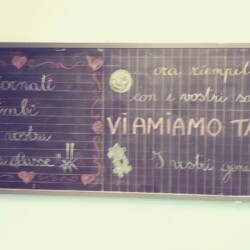 ornati
imbi
vostra
classe"!!
ora riempit
con i vostri so
VI AMIAMO TA
I vostri geni